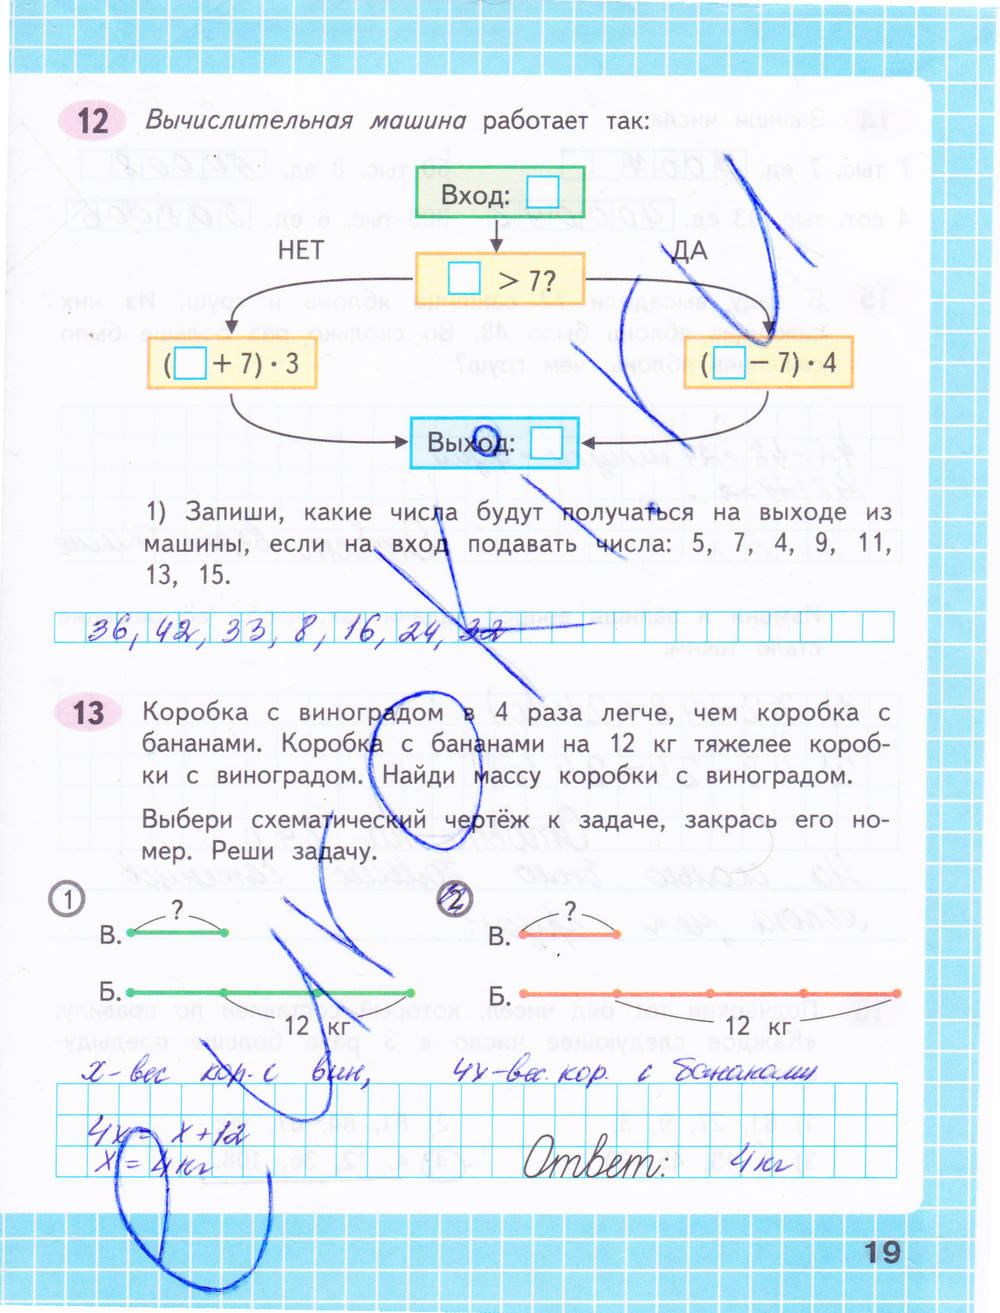 12 Вычислительная машина работает так:
Вход:
НЕТ ДА
> 7?
( + 7) · 3 ( − 7) · 4
Выход:
1) Запиши, какие числа будут получаться на выходе из
машины, если на вход подавать числа: 5, 7, 4, 9, 11,
13, 15.
36, 42, 33, 8, 16, 24, 32
13 Коробка с виноградом в 4 раза легче, чем коробка с
бананами. Коробка с бананами на 12 кг тяжелее короб-
ки с виноградом. Найди массу коробки с виноградом.
Выбери схематический чертёж к задаче, закрась его но-
мер. Реши задачу.
1 2
? ?
В. В.
Б. Б.
12 кг 12 кг
х - вес кор. с вин, 4х - вес. кор. с бананами
4х = х + 12
х = 4 кг Ответ: 4 кг
19